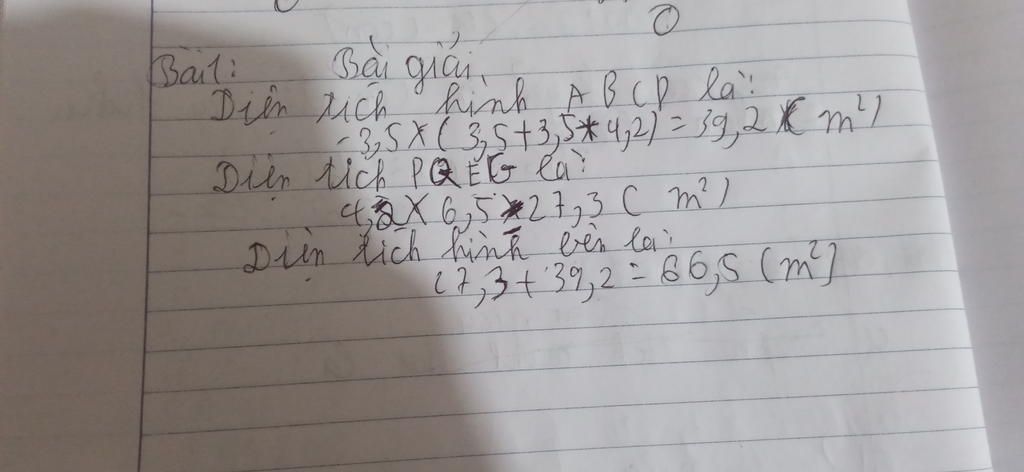 Bài 1: Bài giải
Diện tích hình ABCD là:
3,5 × (3,5+3,5+4,2) = 39,2 (m²)
Diện tích PQEG là:
4,2 × 6,5 = 27,3 (m²)
Diện tích hình bên là:
27,3 + 39,2 = 66,5 (m²)